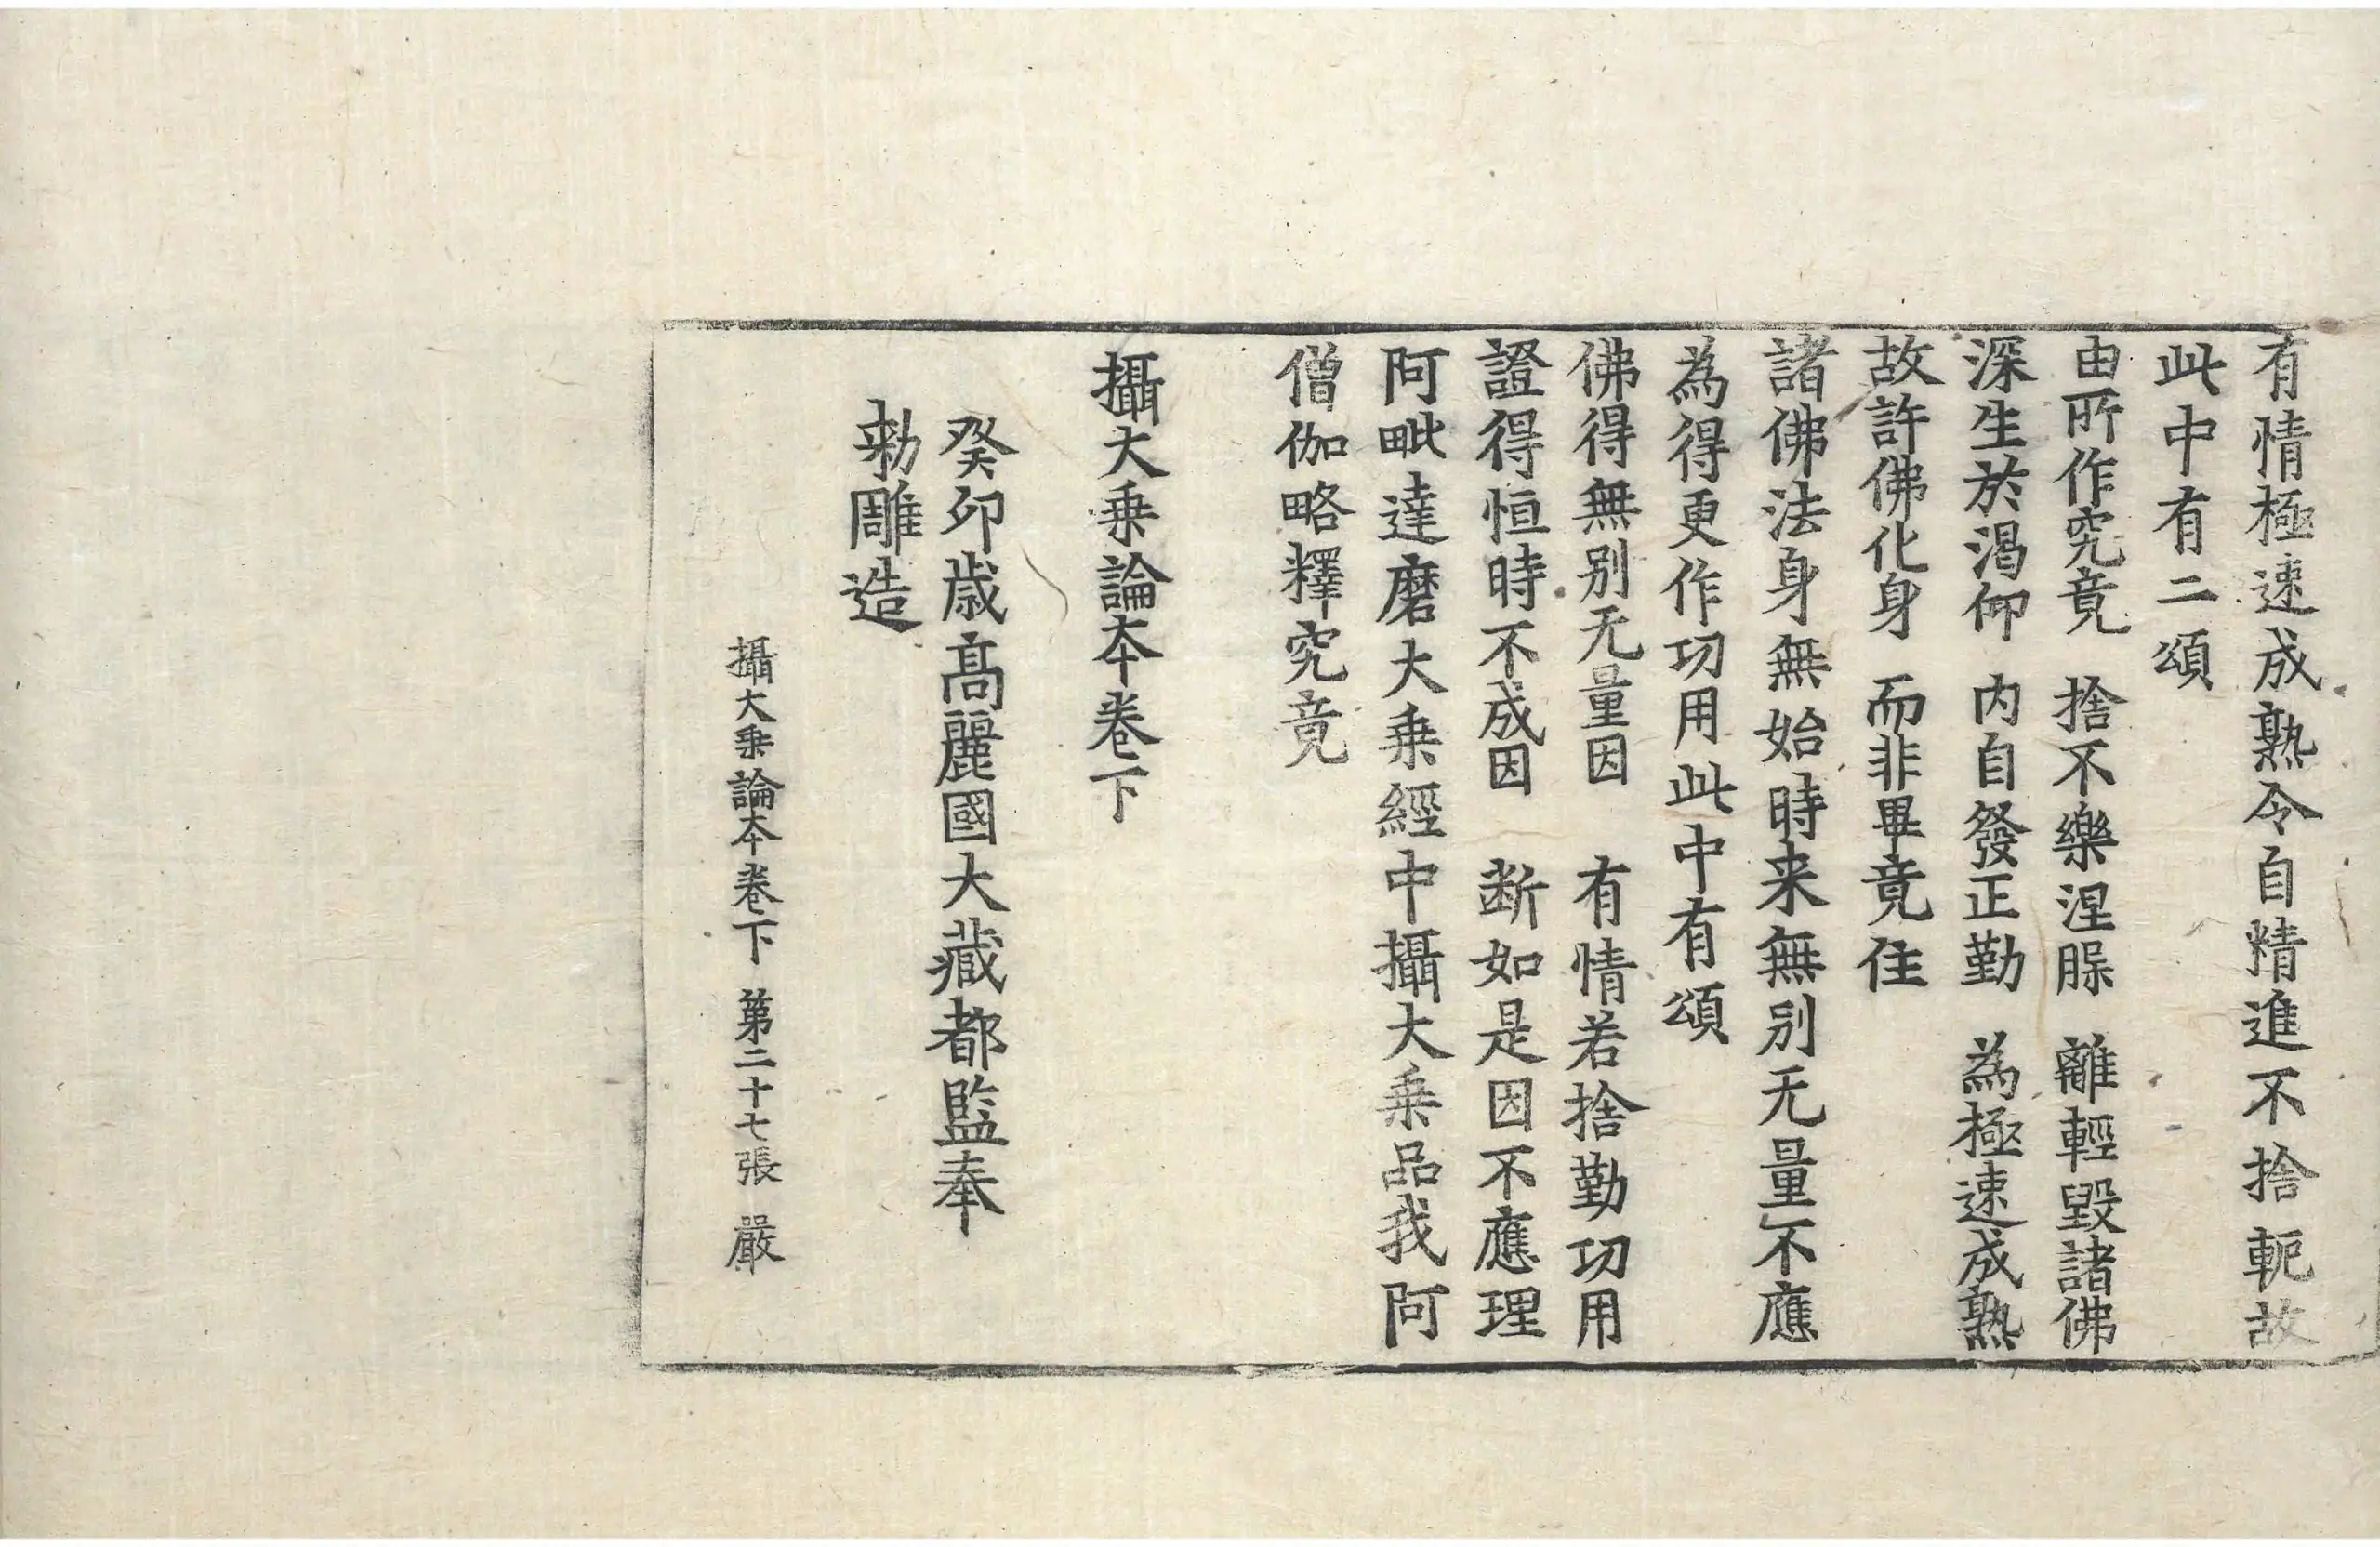 有情極速成熟令自精進不捨軛故
此中有二頌
由所作究竟 捨不樂涅脲 離輕毀諸佛
深生於渴仰 内自發正勤 為極速成熟
故許佛化身 而非畢竟住
諸佛法身無始時来無別无量不應
為得更作功用此中有頌
佛得無别无量因 有情若捨勤功用
證得恒時不成因 断如是因不應理
阿毗達磨大乗經中攝大乗品我阿
僧伽略釋究竟
攝大乗論本卷下
癸卯歲髙麗國大藏都監奉
勑雕造
攝大乗論本卷下 第二十七張 嚴